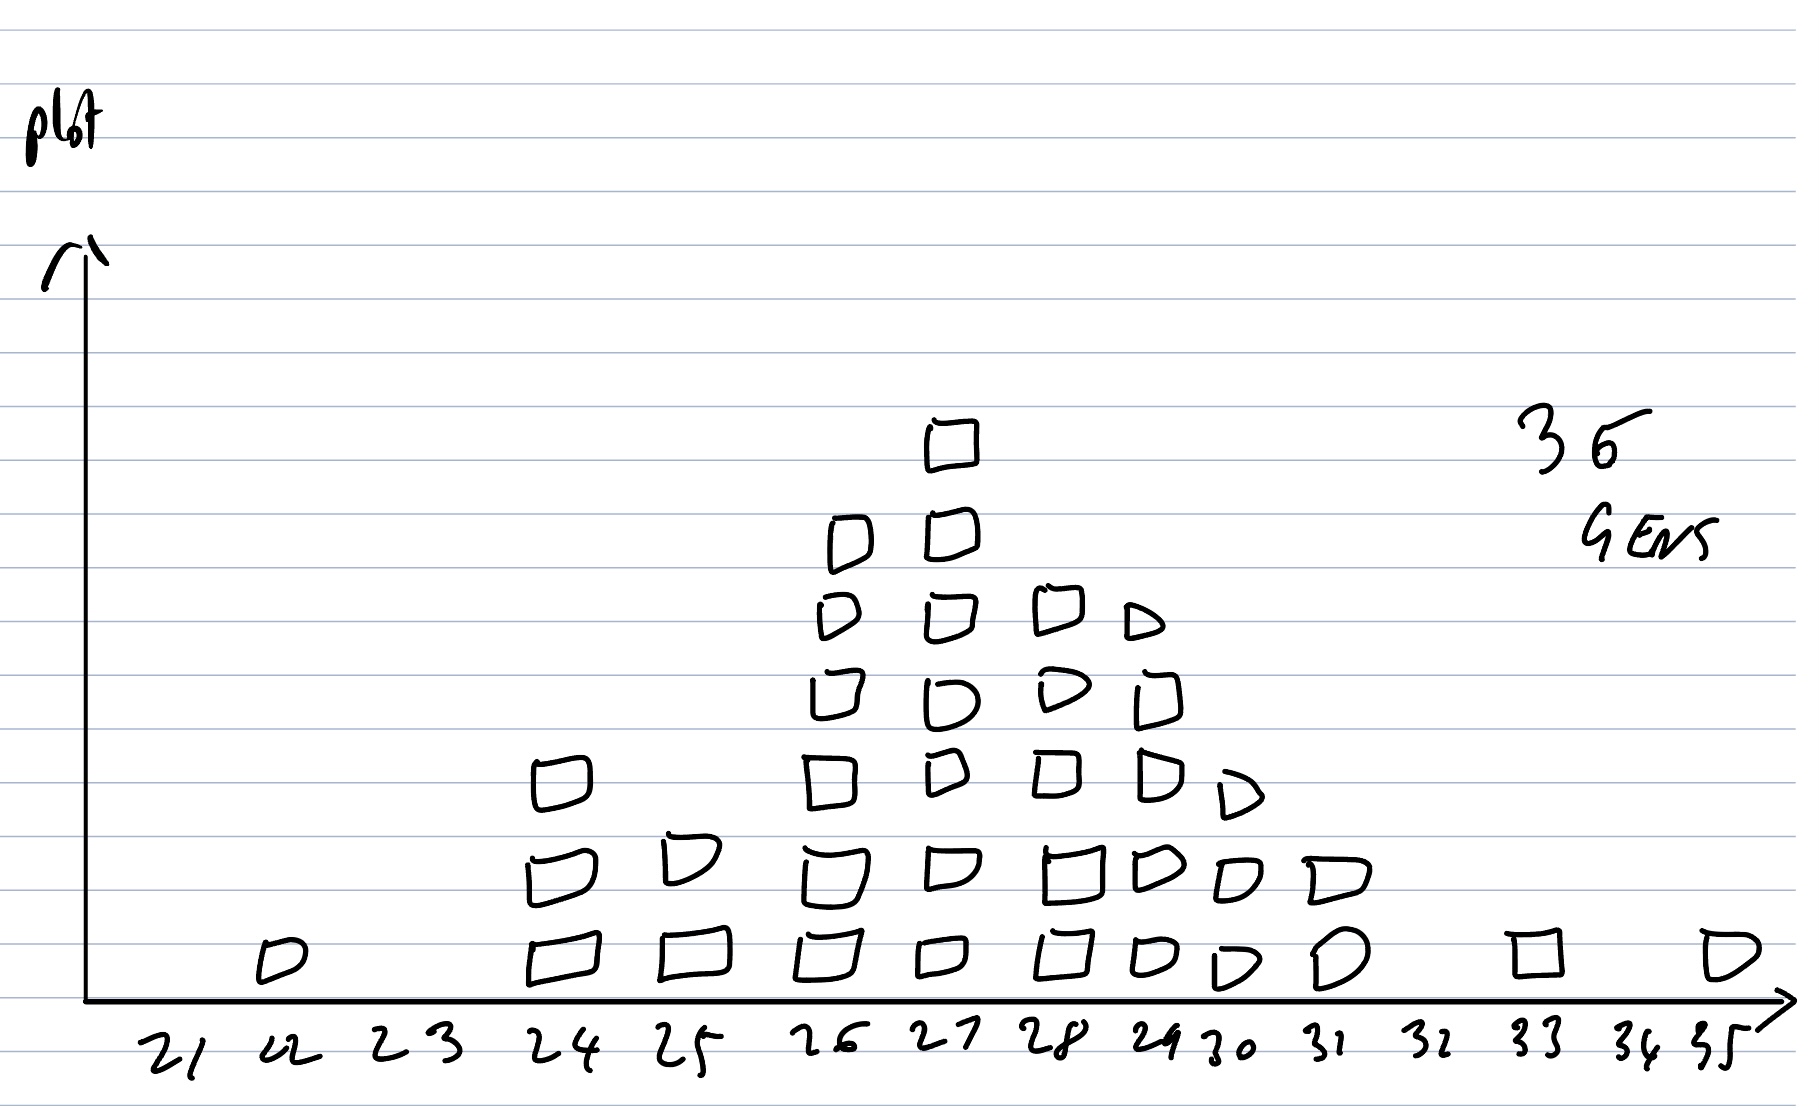 plot
36
GENS
21 22 23 24 25 26 27 28 29 30 31 32 33 34 35